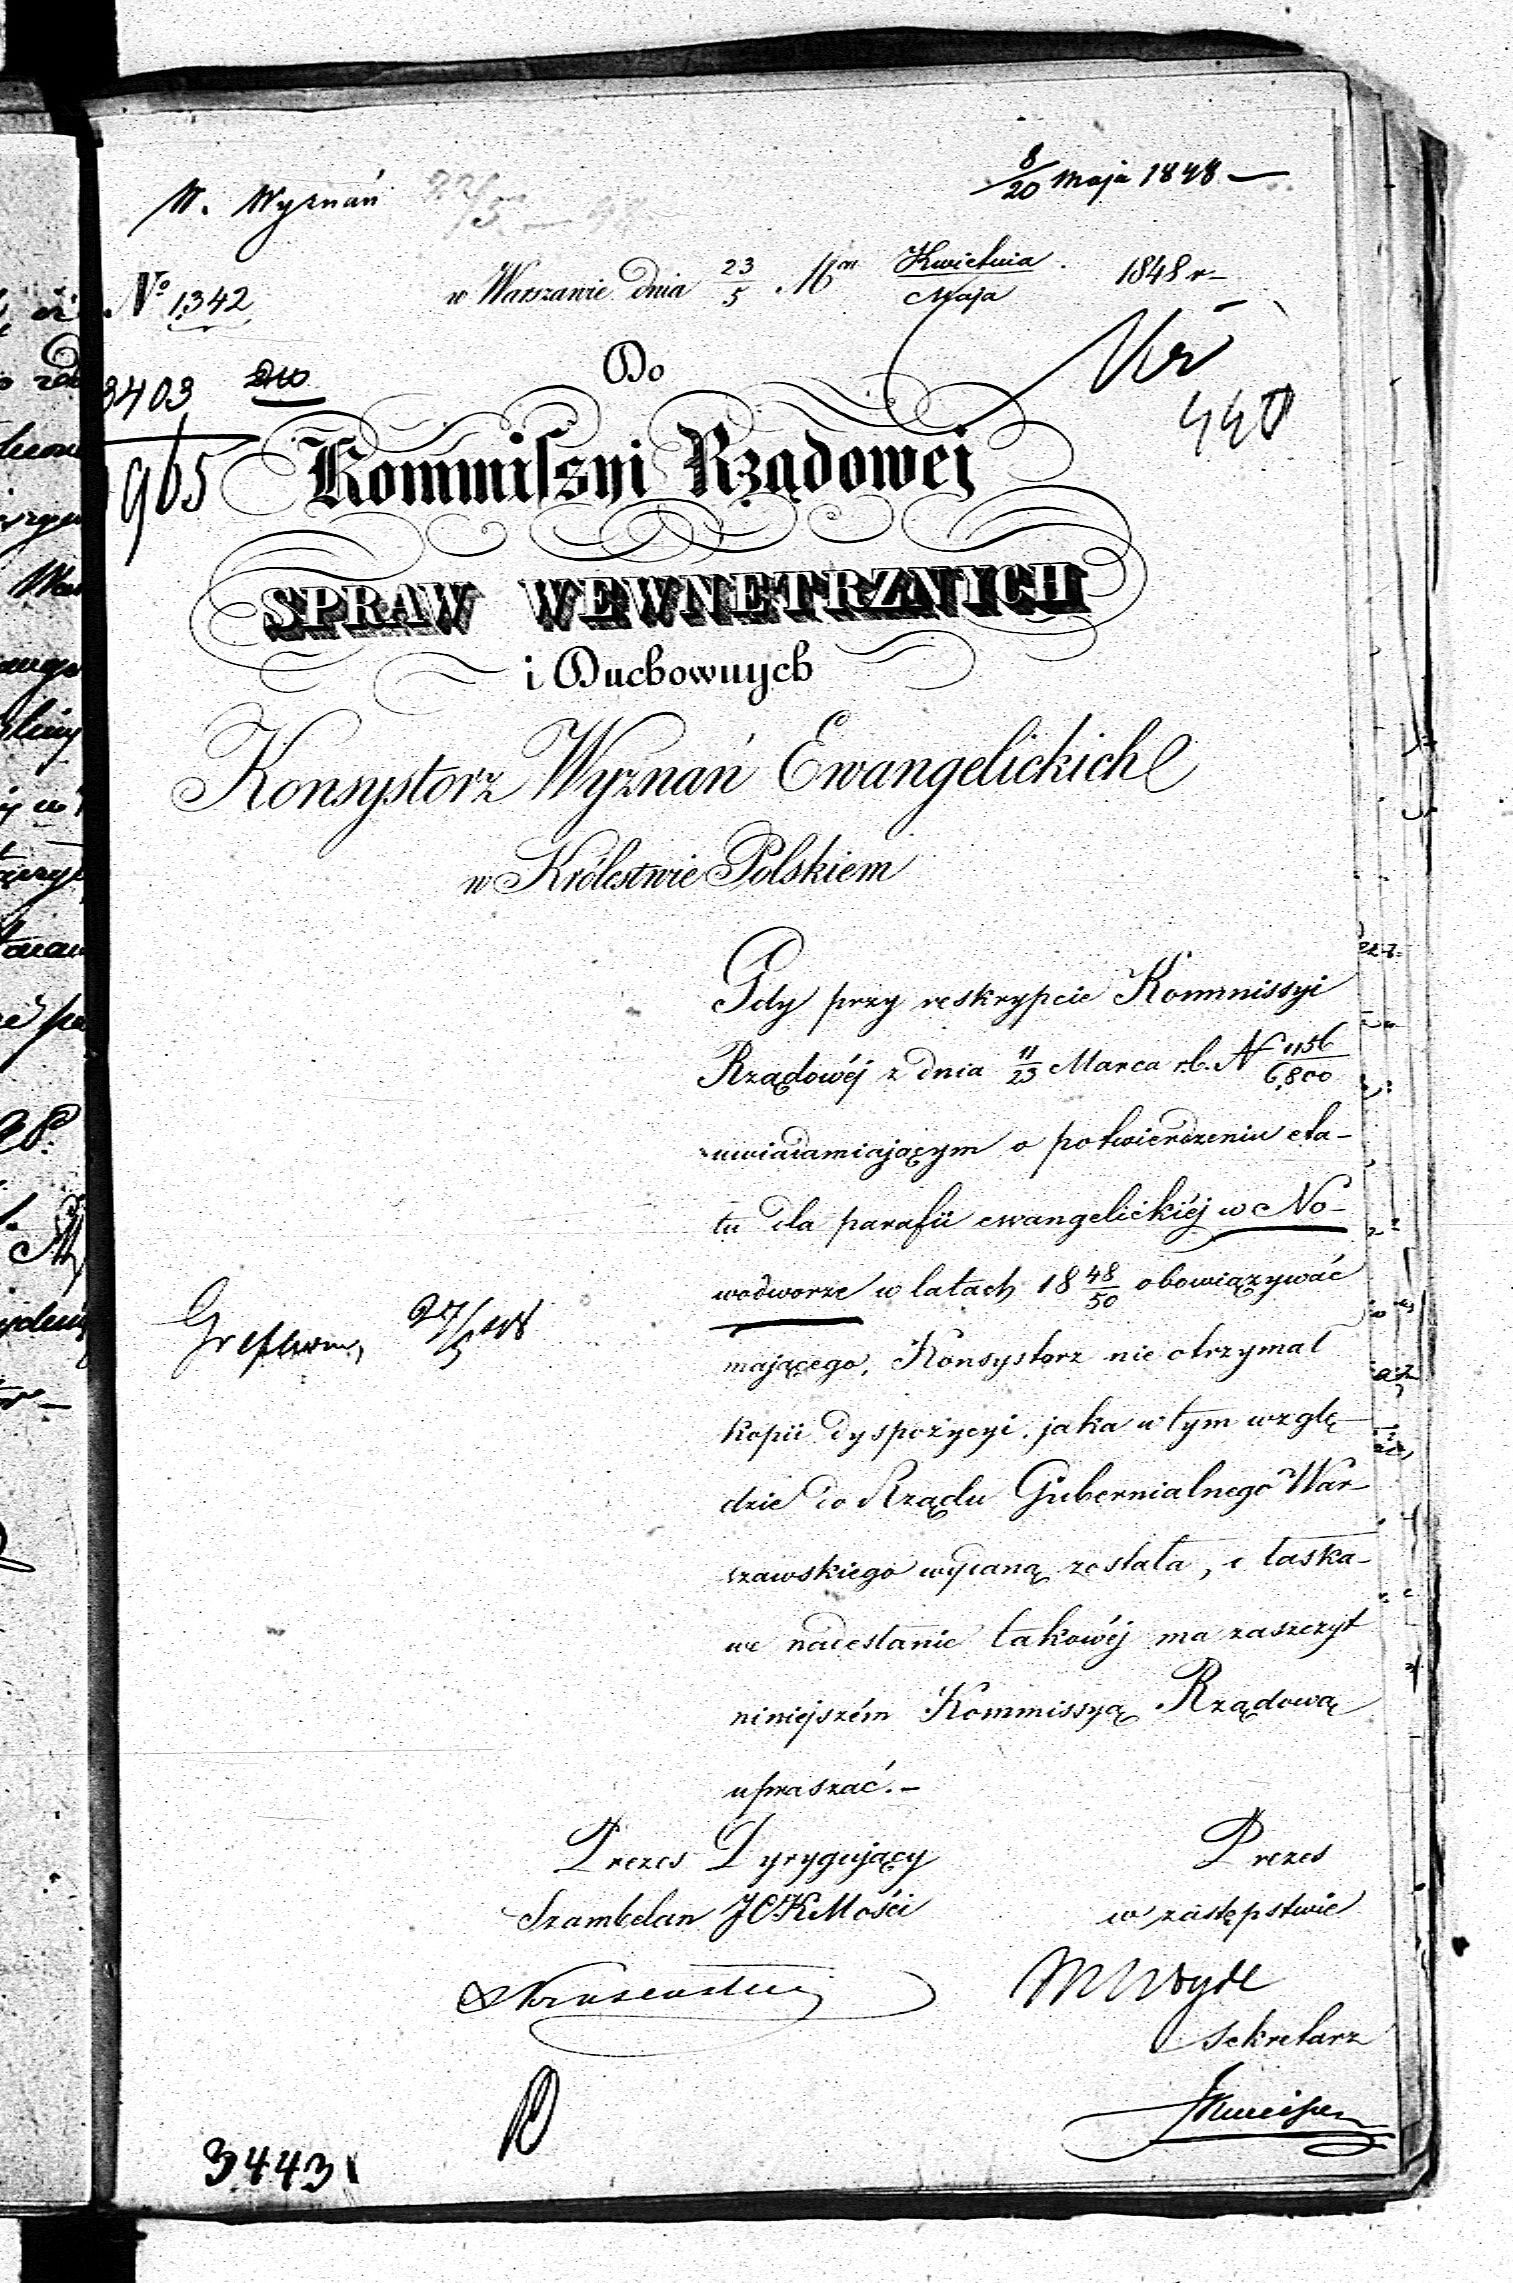 W. Wyznań
8/20 Maja 1848 —
No 1342
w Warszawie dnia 23/5 Mca Kwietnia/Maja 1848 r.
3403
965
440
Do
Kommissyi Rządowej
SPRAW WEWNETRZNYCH
i Duchownych
Konsystorz Wyznań Ewangelickich
w Królestwie Polskiem
Gdy przy reskrypcie Kommissyi
Rządowéj z dnia 11/23 Marca r.b. N 1156/6,800
uwiadamiającym o potwierdzeniu eta-
tu dla parafii ewangelickiéj w No-
wodworze w latach 18 48/50 obowiązywać
mającego, Konsystorz nie otrzymał
kopii dyspozycyi, jaka w tym wzglę-
dzie do Rządu Gubernialnego War-
szawskiego wydaną została, o łaska-
we nadesłanie takowéj ma zaszczyt
niniejszém Kommissyą Rządową
upraszać. —
27/5 848
Prezes Dyrygujący
Szambelan JCKMości
Prezes
w zastępstwie
Sekretarz
3443